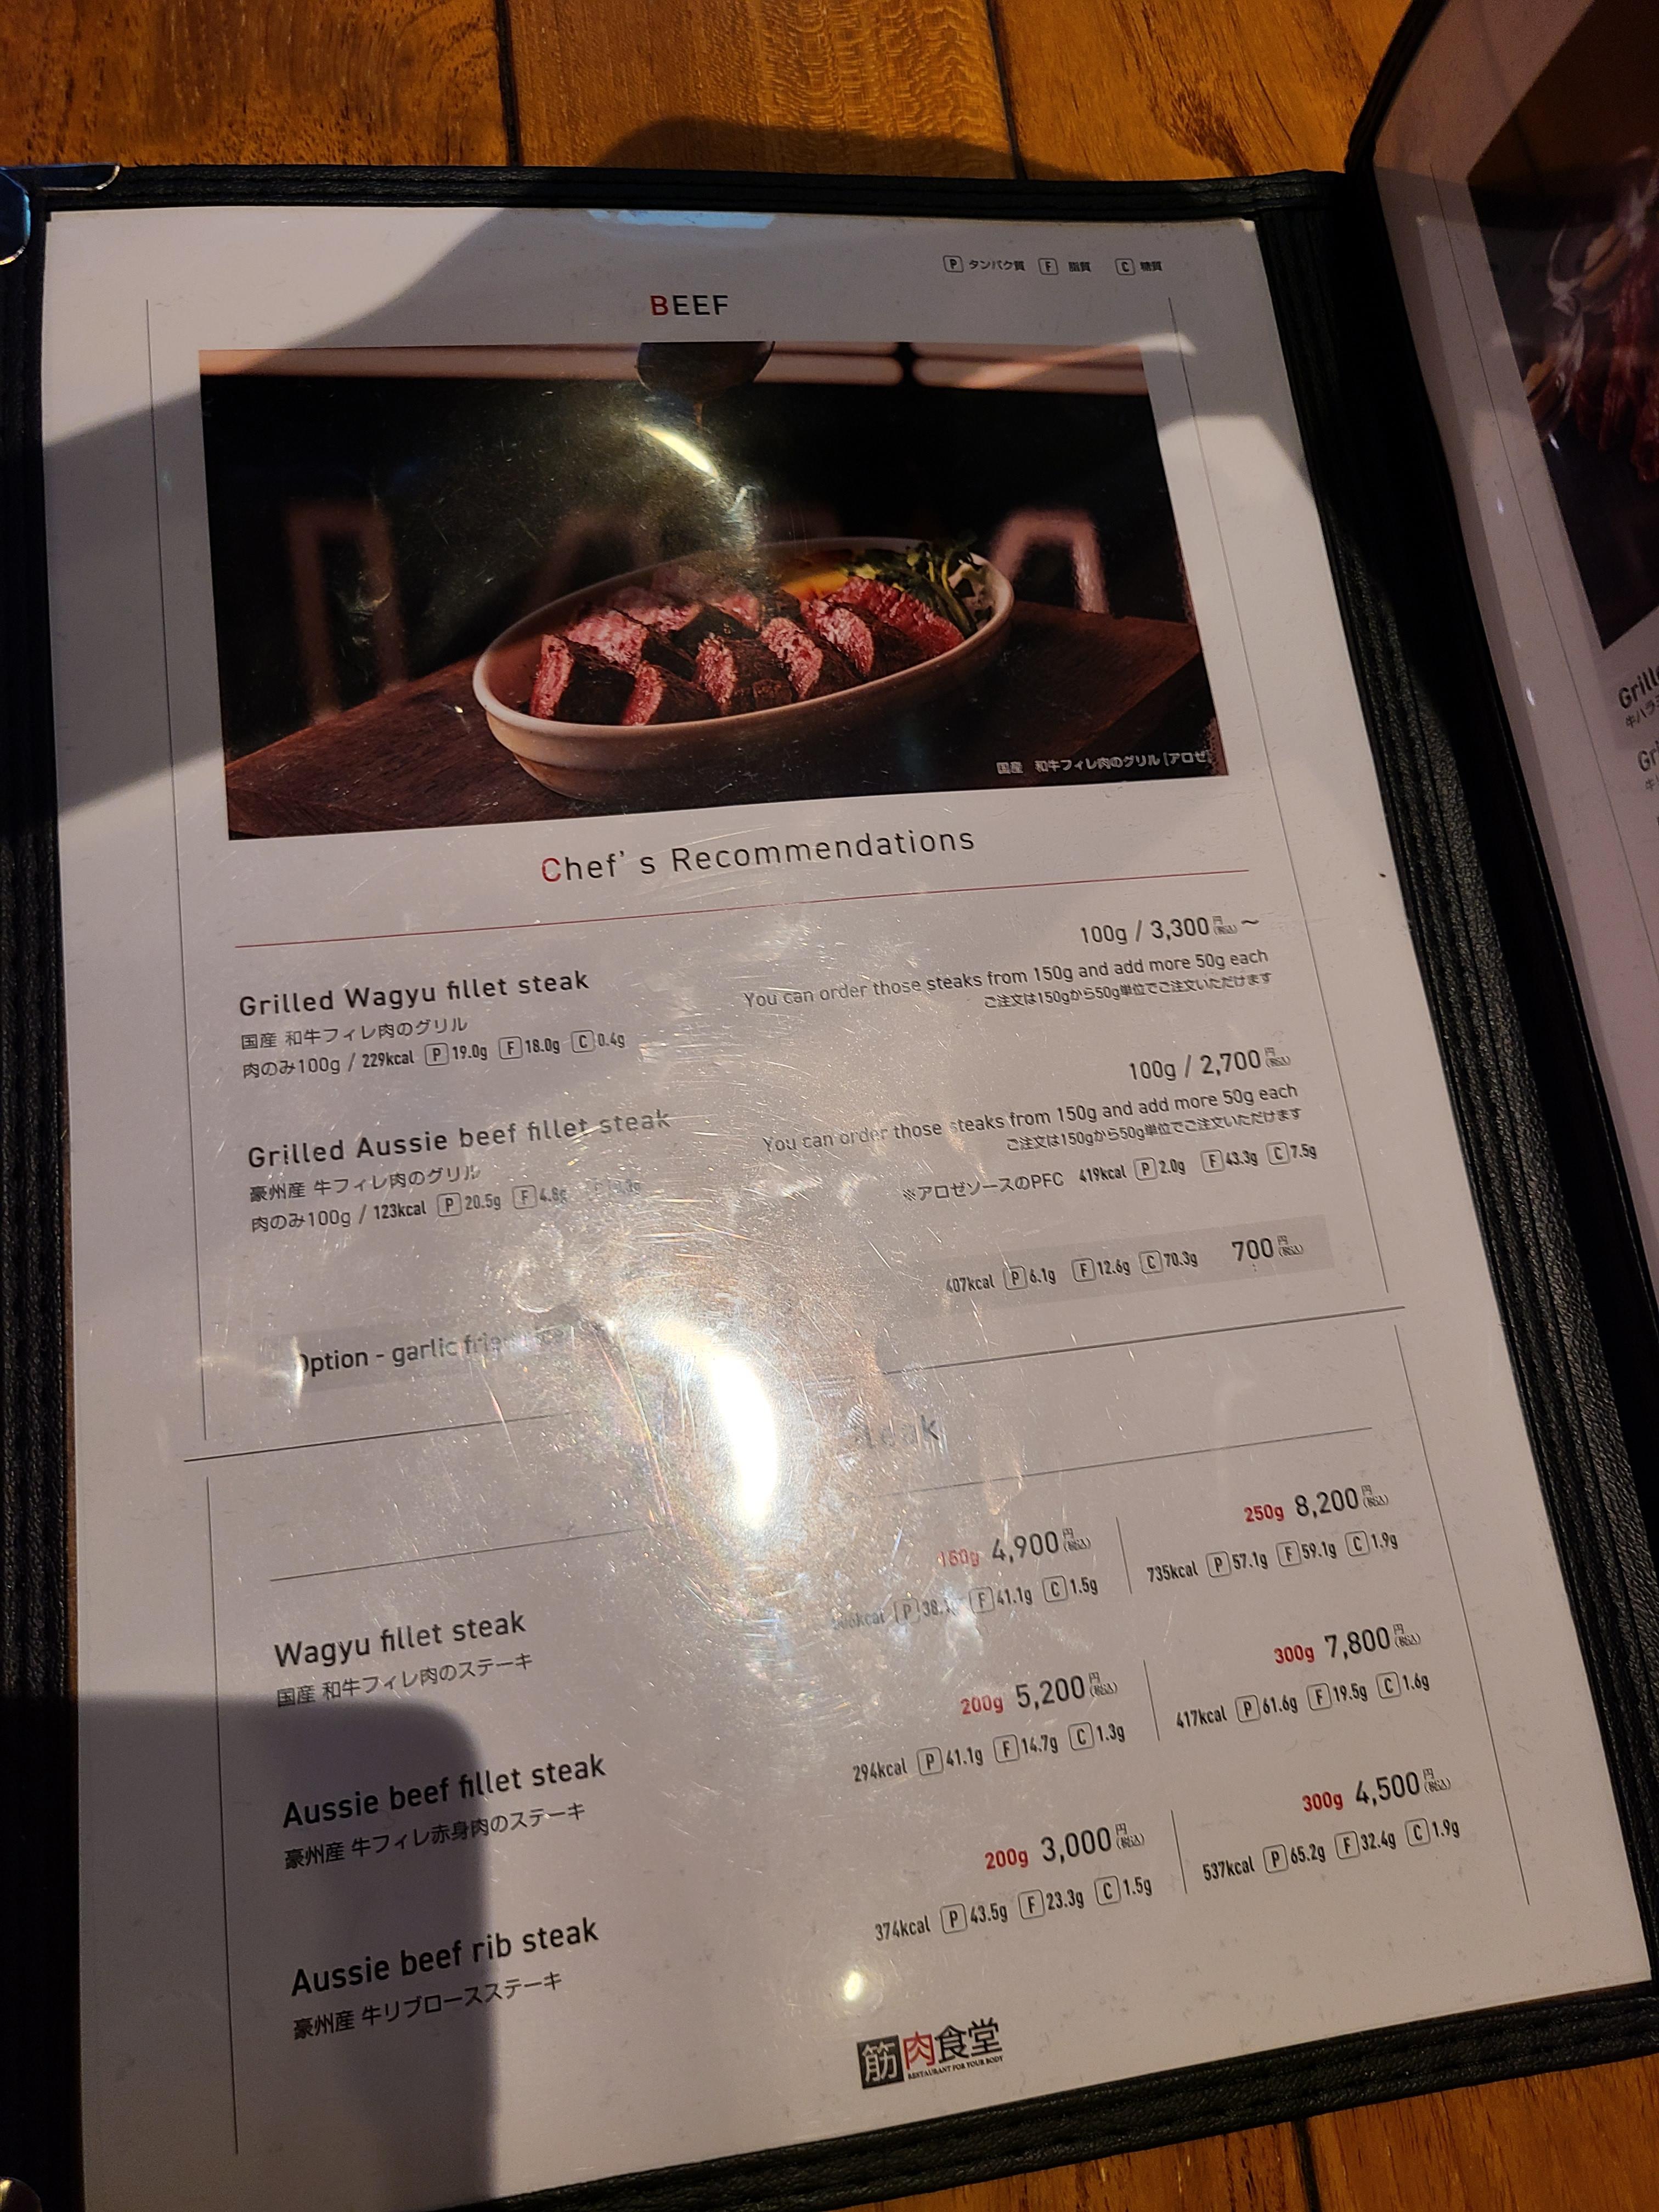 P タンパク質 F 脂質 C 糖質
BEEF
国産 和牛フィレ肉のグリル [アロゼ]
Chef's Recommendations
100g / 3,300円(税込)～
Grilled Wagyu fillet steak
You can order those steaks from 150g and add more 50g each
国産 和牛フィレ肉のグリル
ご注文は150gから50g単位でご注文いただけます
肉のみ100g / 229kcal P 19.0g F 18.0g C 0.4g
100g / 2,700円(税込)
Grilled Aussie beef fillet steak
You can order those steaks from 150g and add more 50g each
豪州産 牛フィレ肉のグリル
ご注文は150gから50g単位でご注文いただけます
肉のみ100g / 123kcal P 20.5g F 4.8g
※アロゼソースのPFC 419kcal P 2.0g F 43.3g C 7.5g
Option - garlic
407kcal P 6.1g F 12.6g C 70.3g 700円(税込)
Steak
Wagyu fillet steak
150g 4,900円(税込)
250g 8,200円(税込)
国産 和牛フィレ肉のステーキ
P F 41.1g C 1.5g
735kcal P 57.1g F 59.1g C 1.9g
Aussie beef fillet steak
200g 5,200円(税込)
300g 7,800円(税込)
豪州産 牛フィレ赤身肉のステーキ
294kcal P 41.1g F 14.7g C 1.3g
417kcal P 61.6g F 19.5g C 1.6g
Aussie beef rib steak
200g 3,000円(税込)
300g 4,500円(税込)
豪州産 牛リブロースステーキ
374kcal P 43.5g F 23.3g C 1.5g
537kcal P 65.2g F 32.4g C 1.9g
筋肉食堂
RESTAURANT FOR YOUR BODY